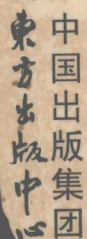 中国出版集团
東方出版中心